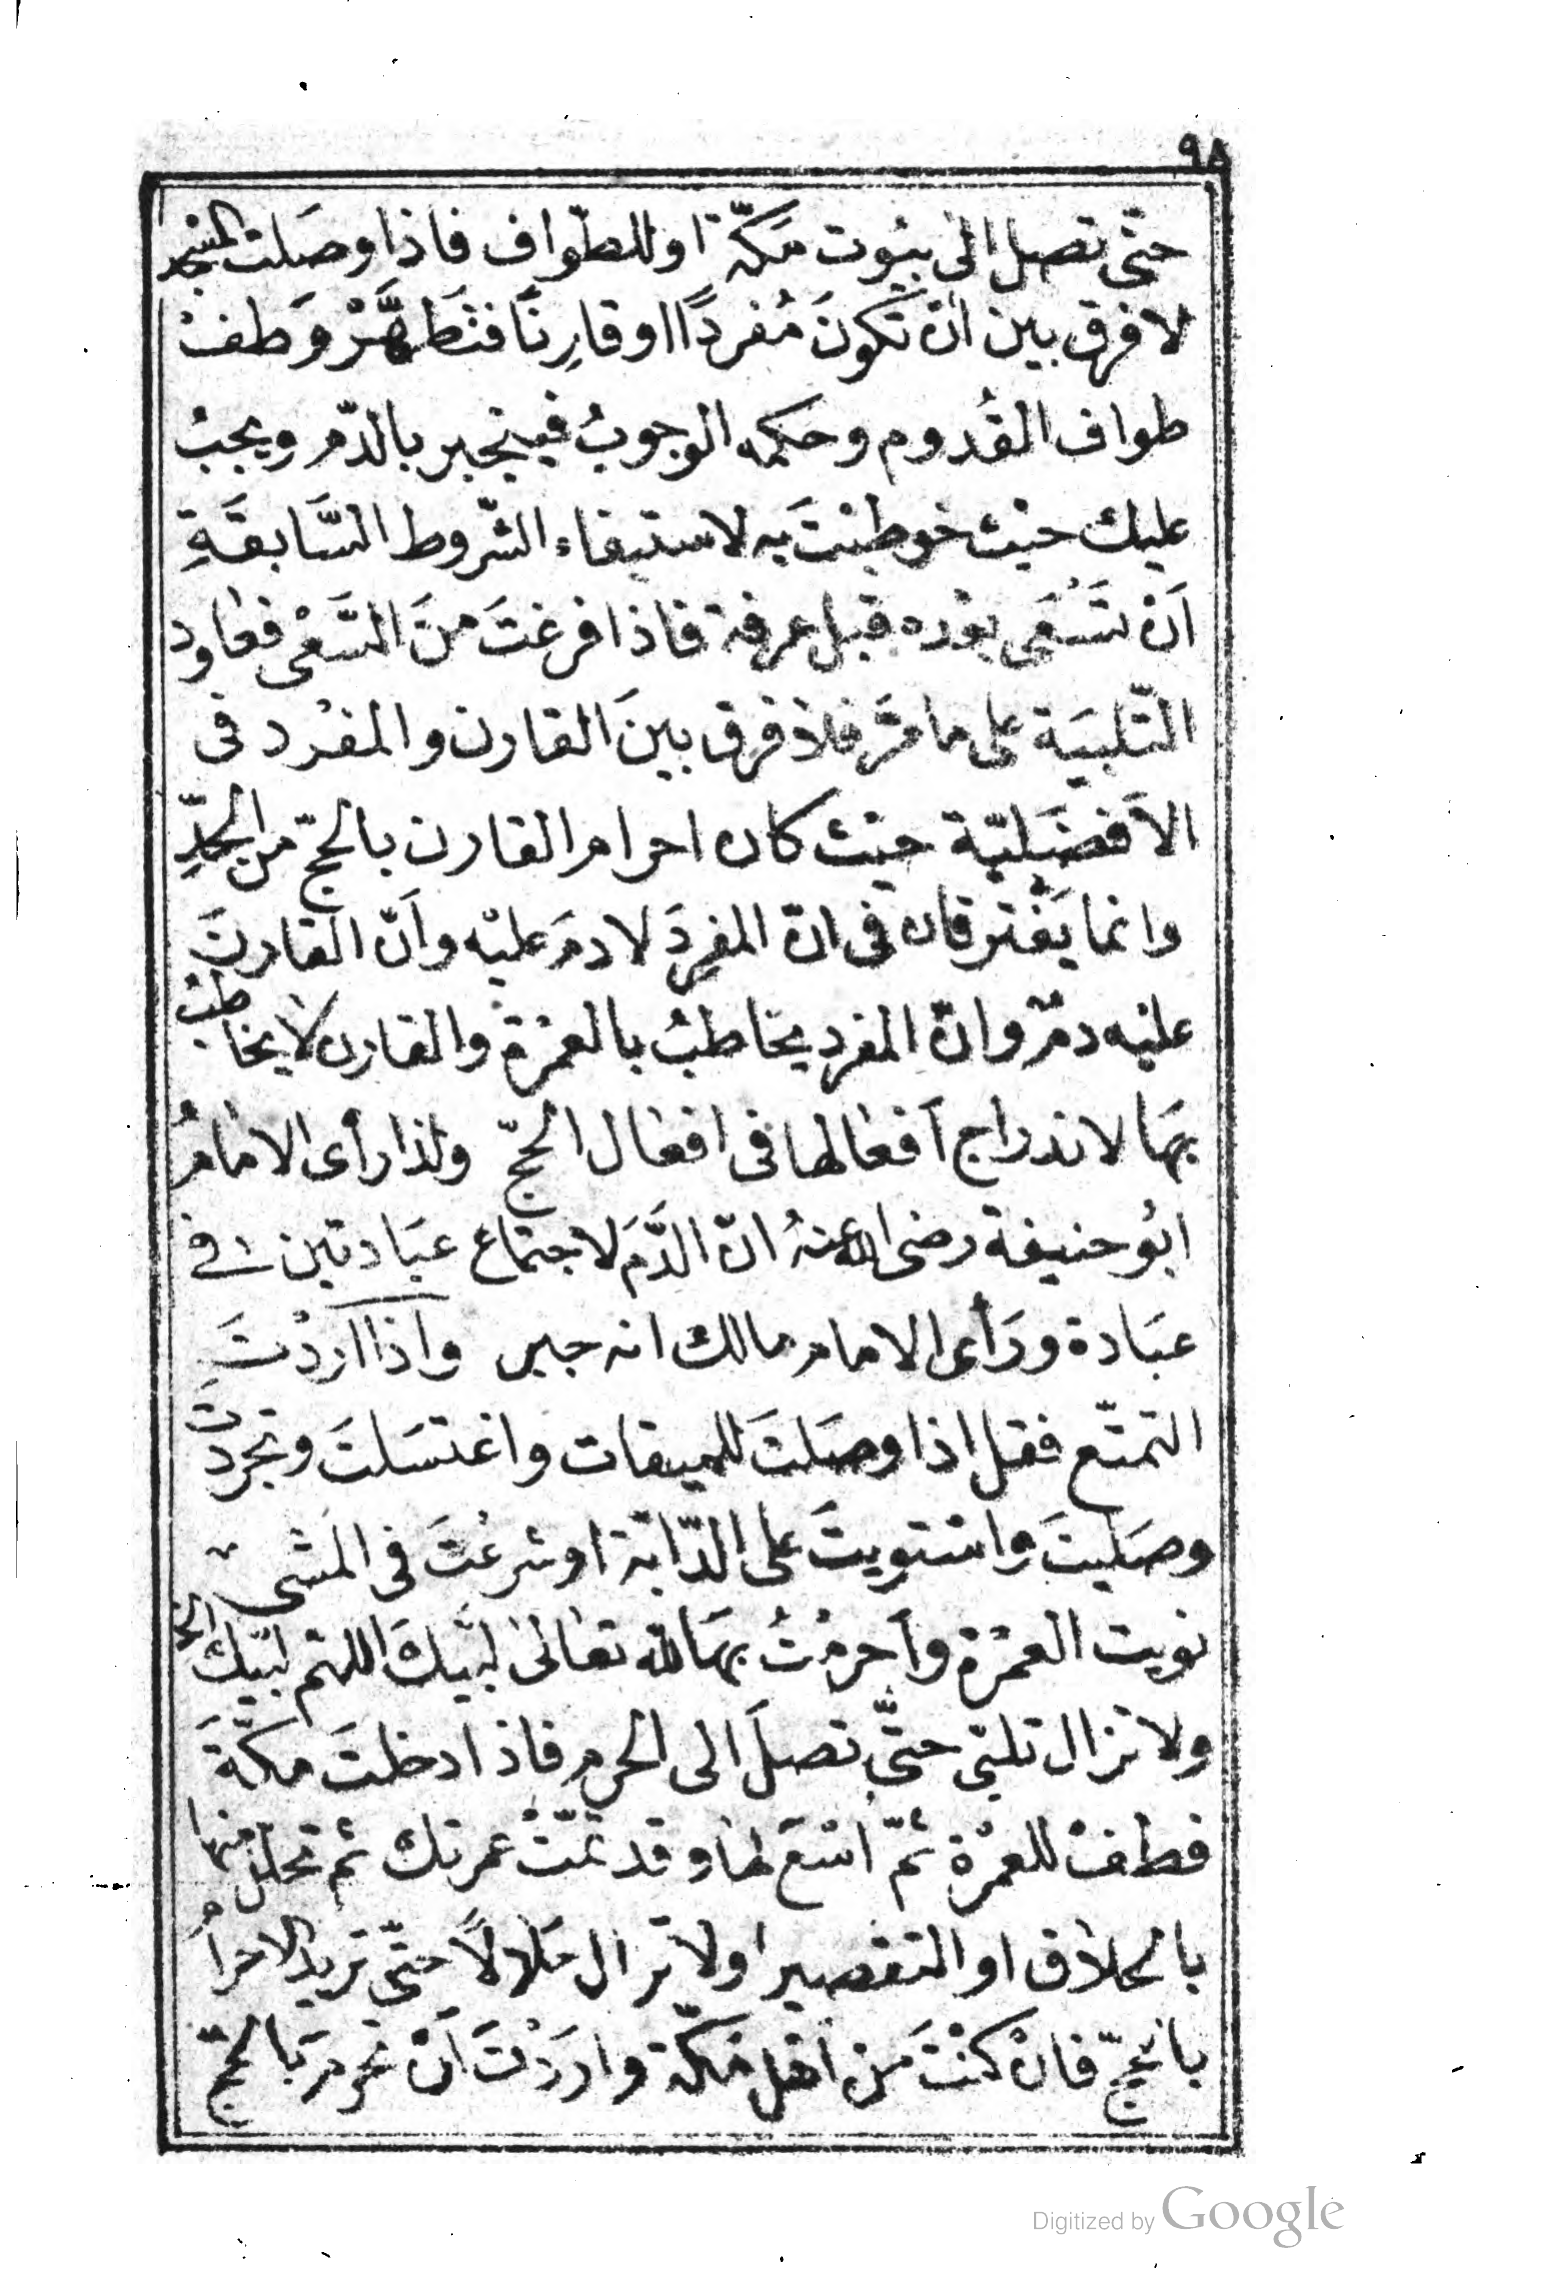 ٩٨
حتّى تصل الى بيُوت مَكّة او للطّواف فاذا وصَلت المسجد
لا فرق بين ان تكونَ مُفردًا او قارِنًا فتَطَهَّرْ وَطفْ
طواف القُدوم وحكمه الوجوبُ فينجبر بالدّم ويجبُ
عليك حيْث خوطبْتَ به لاستيفاء الشّروط السَّابقَةِ
اَنْ تَسْعَى بعْده قبل عرفة فاذا فرغتَ منَ السَّعْى فعاود
التّلبيَة على ما مَرّ فلا فرق بينَ القارن والمفْرد فى
الاَفضَليّة حيْث كان احرام القارن بالحجّ من الجدِّ
وانما يَفْترقان فى انّ المفرِدَ لا دمَ عليْه واَنّ القارنَ
عليْه دمٌ وانّ المفرد يخاطبُ بالعمْرَة والقارن لا يخاطبُ
بهَا لاندراج اَفعالها فى افعال الحجّ ولذا رأى الامامُ
ابُو حنيفة رضى الله عنهُ انّ الدَّمَ لاجتماع عبَادتين فى
عبَادة ورَأى الامام مالك انه جبر واذا اردْتَ
التمتّع فقل اذا وصَلتَ للميقات واغتسَلتَ وتجردتَ
وصَليتَ واسْتويتَ على الدّابّة او شرعْتَ فى المَشى
نويت العمْرَة واَحرمْتُ بهَا لله تعالىٰ لبّيكَ اللهمّ لبّيك الخ
ولا تزال تلبّى حتّى تصلَ الى الحرم فاذا دخلتَ مكّةَ
فطفْ للعمْرَة ثمّ اسْعَ لها وقد تمّتْ عمرتك ثم تحلل منها
بالحلاق او التقصير ولا تزال حَلالاً حتّى تريد الاحرامُ
بالحجّ فانْ كنْتَ مَن اهل مَكّة واردْتَ اَنْ تحرمَ بالحجّ
Digitized by Google